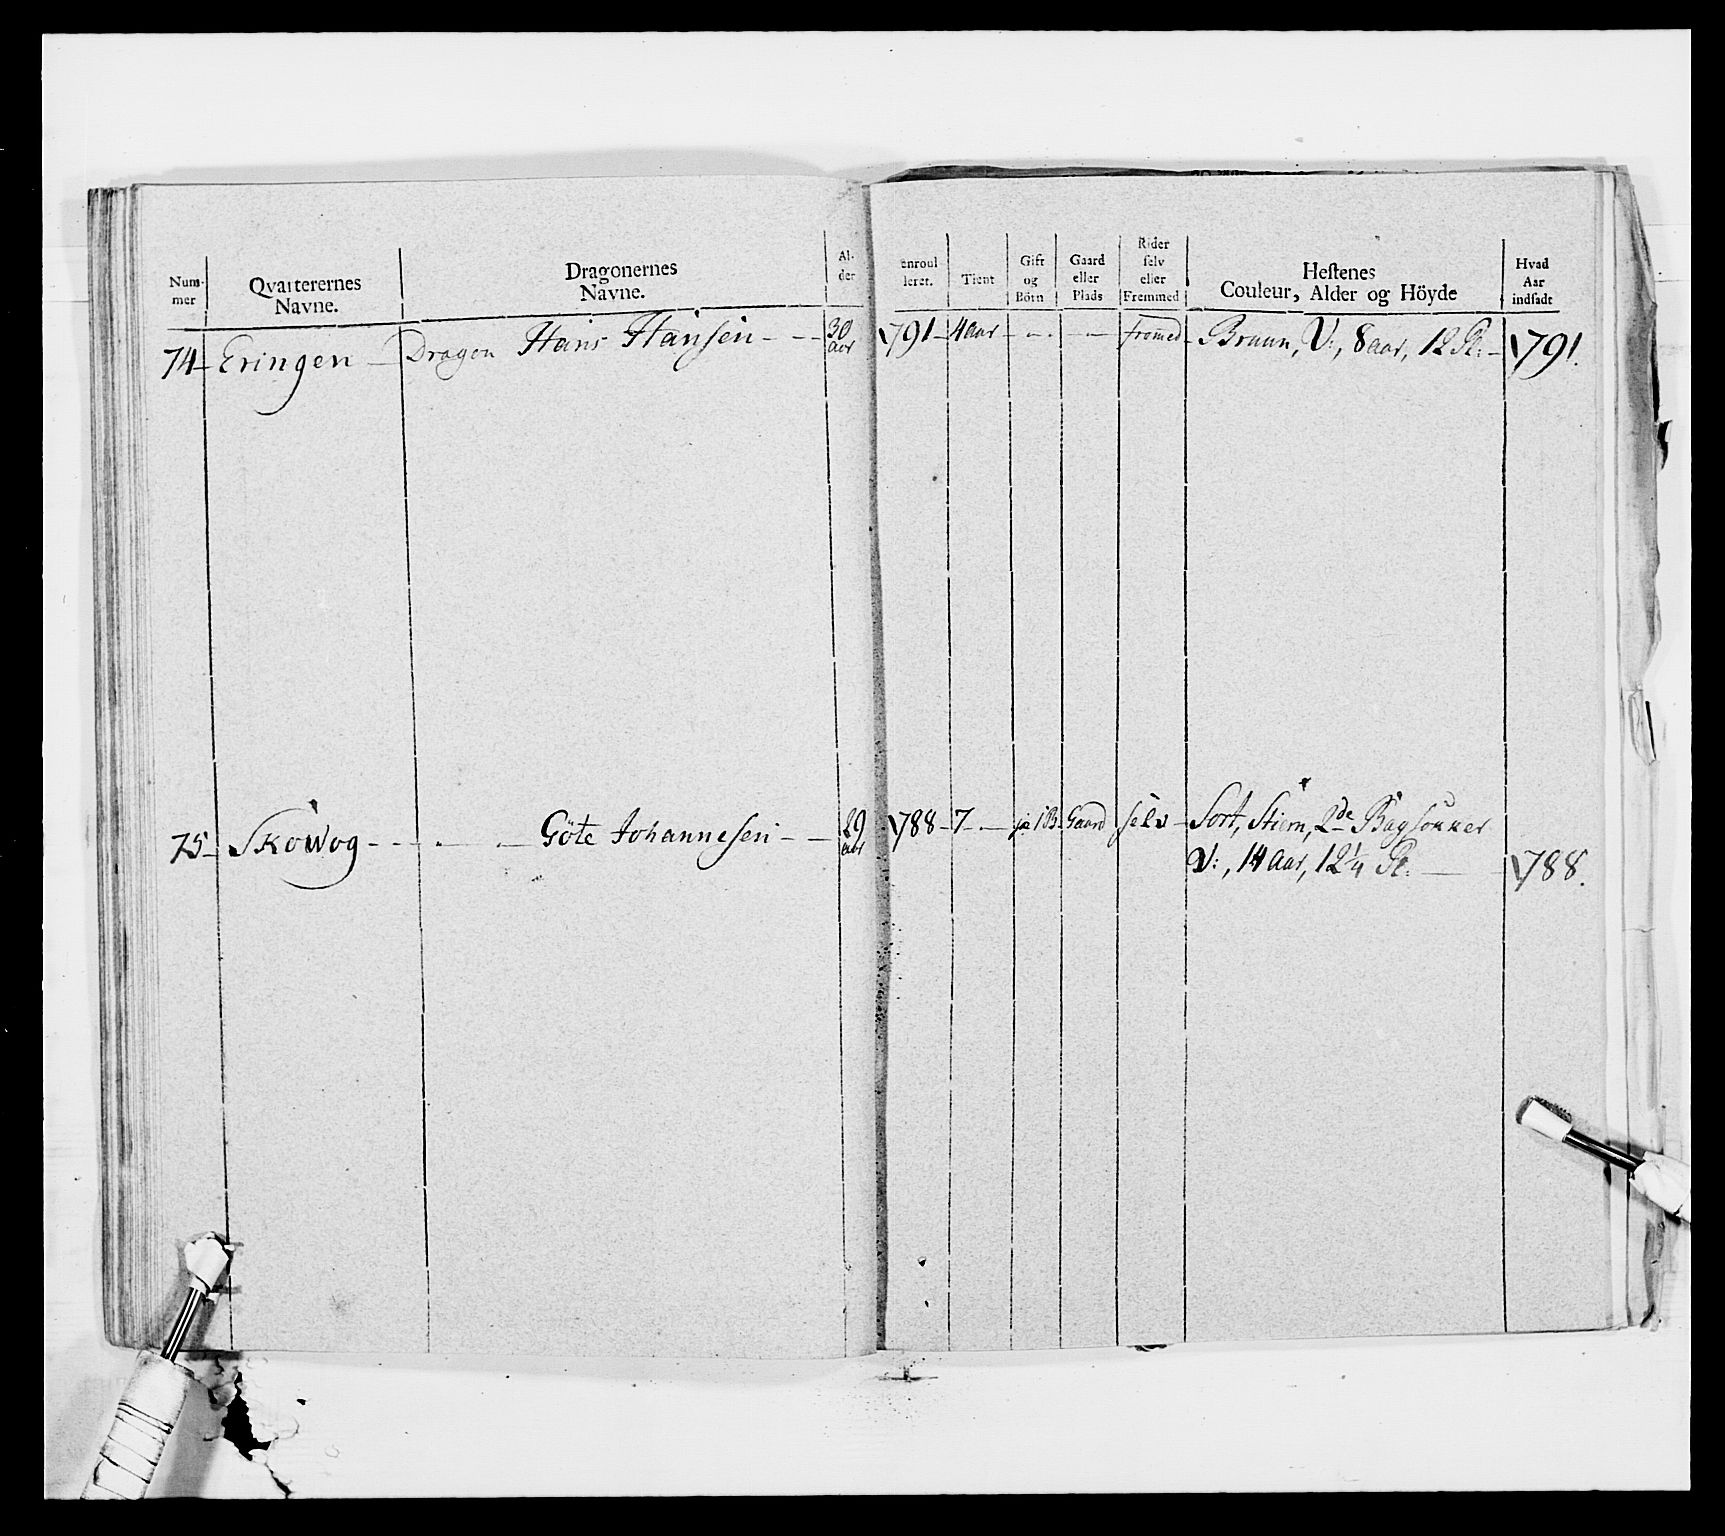 Num-
mer
Qvarterernes
Navne.
Dragonernes
Navne.
Al-
der
enroul
leret.
Tient
Gift
og
Börn
Gaard
eller
Plads
Rider
selv
eller
Fremmed
Hestenes
Couleur, Alder og Höyde
Hvad
Aar
indsadt
74 Eringen Dragon Hans Hansen 30 aar 1791 4 aar fremed Bruun, V:, 8 aar, 12 Qt: 1791.
75 Skowog Göte Johannesen 29 aar 1788 7 ja 1 B Gaard selv Sort, Stiern, 2de Bagsokker
V:, 14 aar, 12 1/4 Qt: 1788.